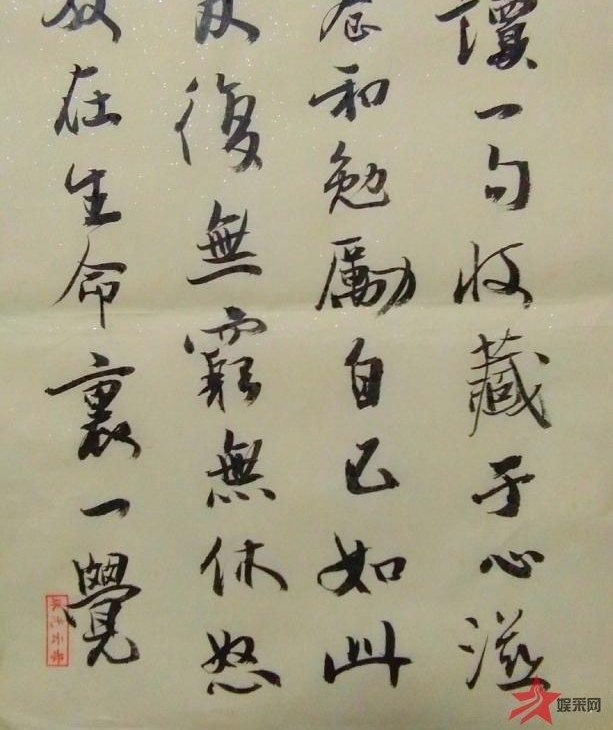 讀一句收藏于心滋
养和勉勵自己如此
反復無窮無休怒
放在生命裏一覺
娱采网